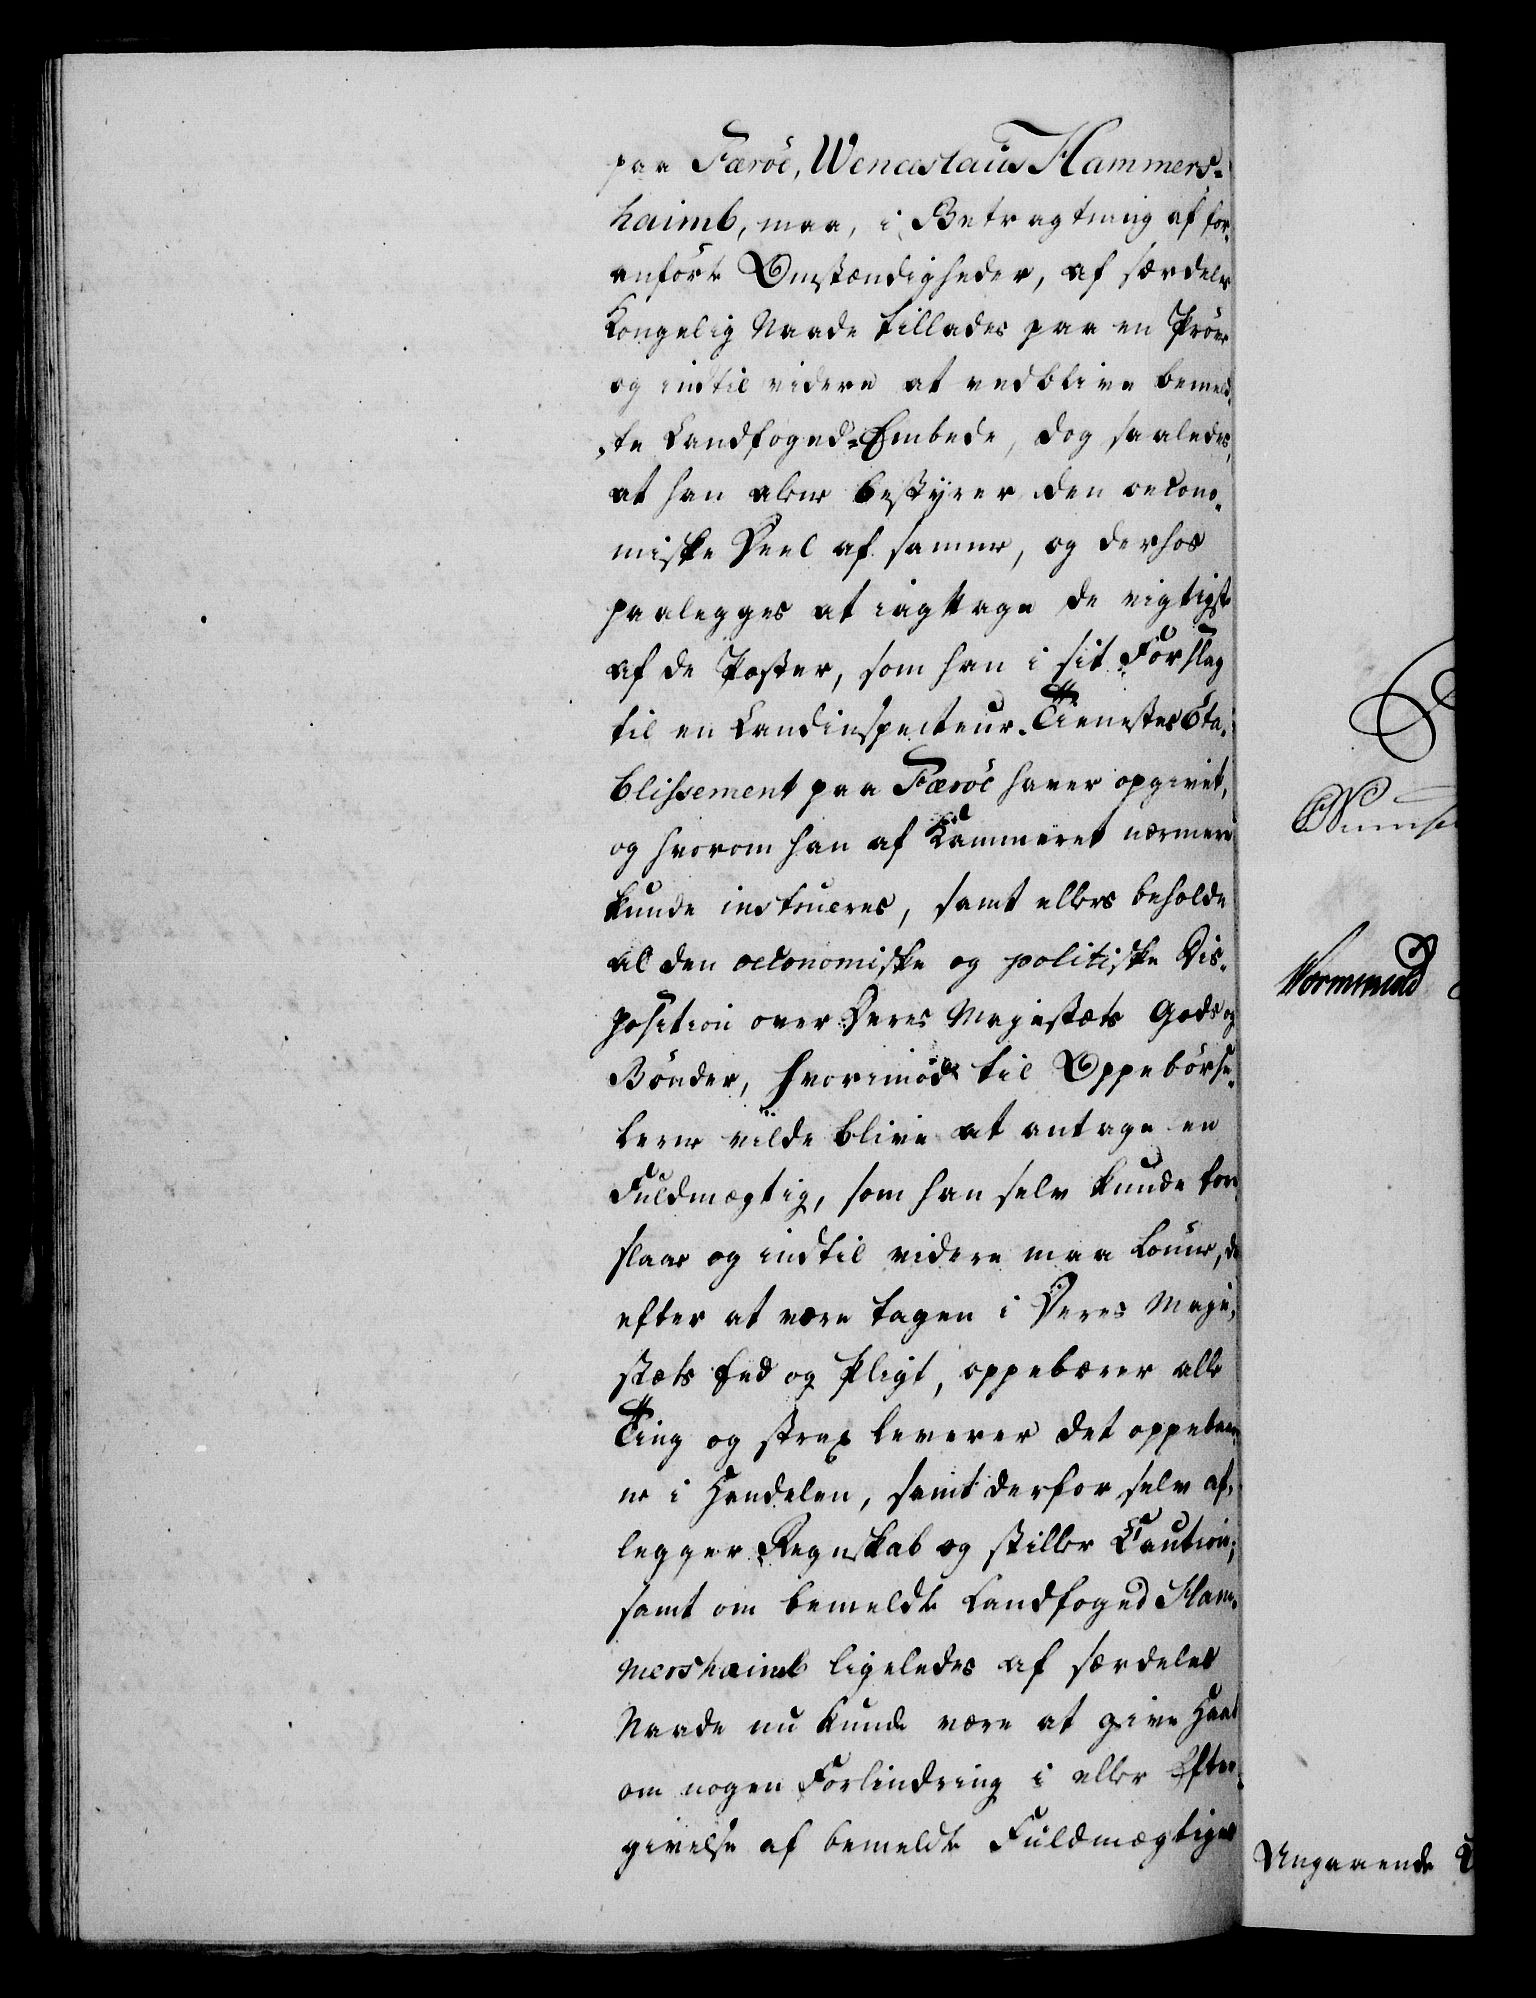 paa Færöe, Wenceslaus Hammers-
haimb, maa, i Betragtning af for-
anförte Omstændigheder, af særdeles
Kongelig Naade tillades paa en Pröve
og indtil videre at vedblive bemeld-
te Landfoged-Embede, dog saaledes,
at han alene bestyrer den oecono-
miske Deel af samme, og derhos
paalegges at iagttage de vigtigste
af de Poster, som han i sit Forslag
til en Landinspecteur-Tienestes Eta-
blissement paa Færöe haver opgivet,
og hvorom han af Kammeret nærmere
kunde instrueres, samt ellers beholde
al den oeconomiske og politiske Dis-
position over Deres Majestæts Gods og
Bönder, hvorimod til Oppebörse-
lerne vilde blive at antage en
Fuldmægtig, som han selv kunde fore-
slaae og indtil videre maa lönne, der
efter at være tagen i Deres Maje-
stæts Eed og Pligt, oppebærer alle
Ting og strax leverer det oppebaar-
ne i Handelen, samt derfor selv af-
legger Regnskab og stiller Caution;
samt om bemeldte Landfoged Ham-
mershaimb ligeledes af særdeles
Naade nu kunde være at give Haab
om nogen Forlindring i eller Efter-
givelse af bemeldte Fuldmægtiges
Wormskiold
Angaaende